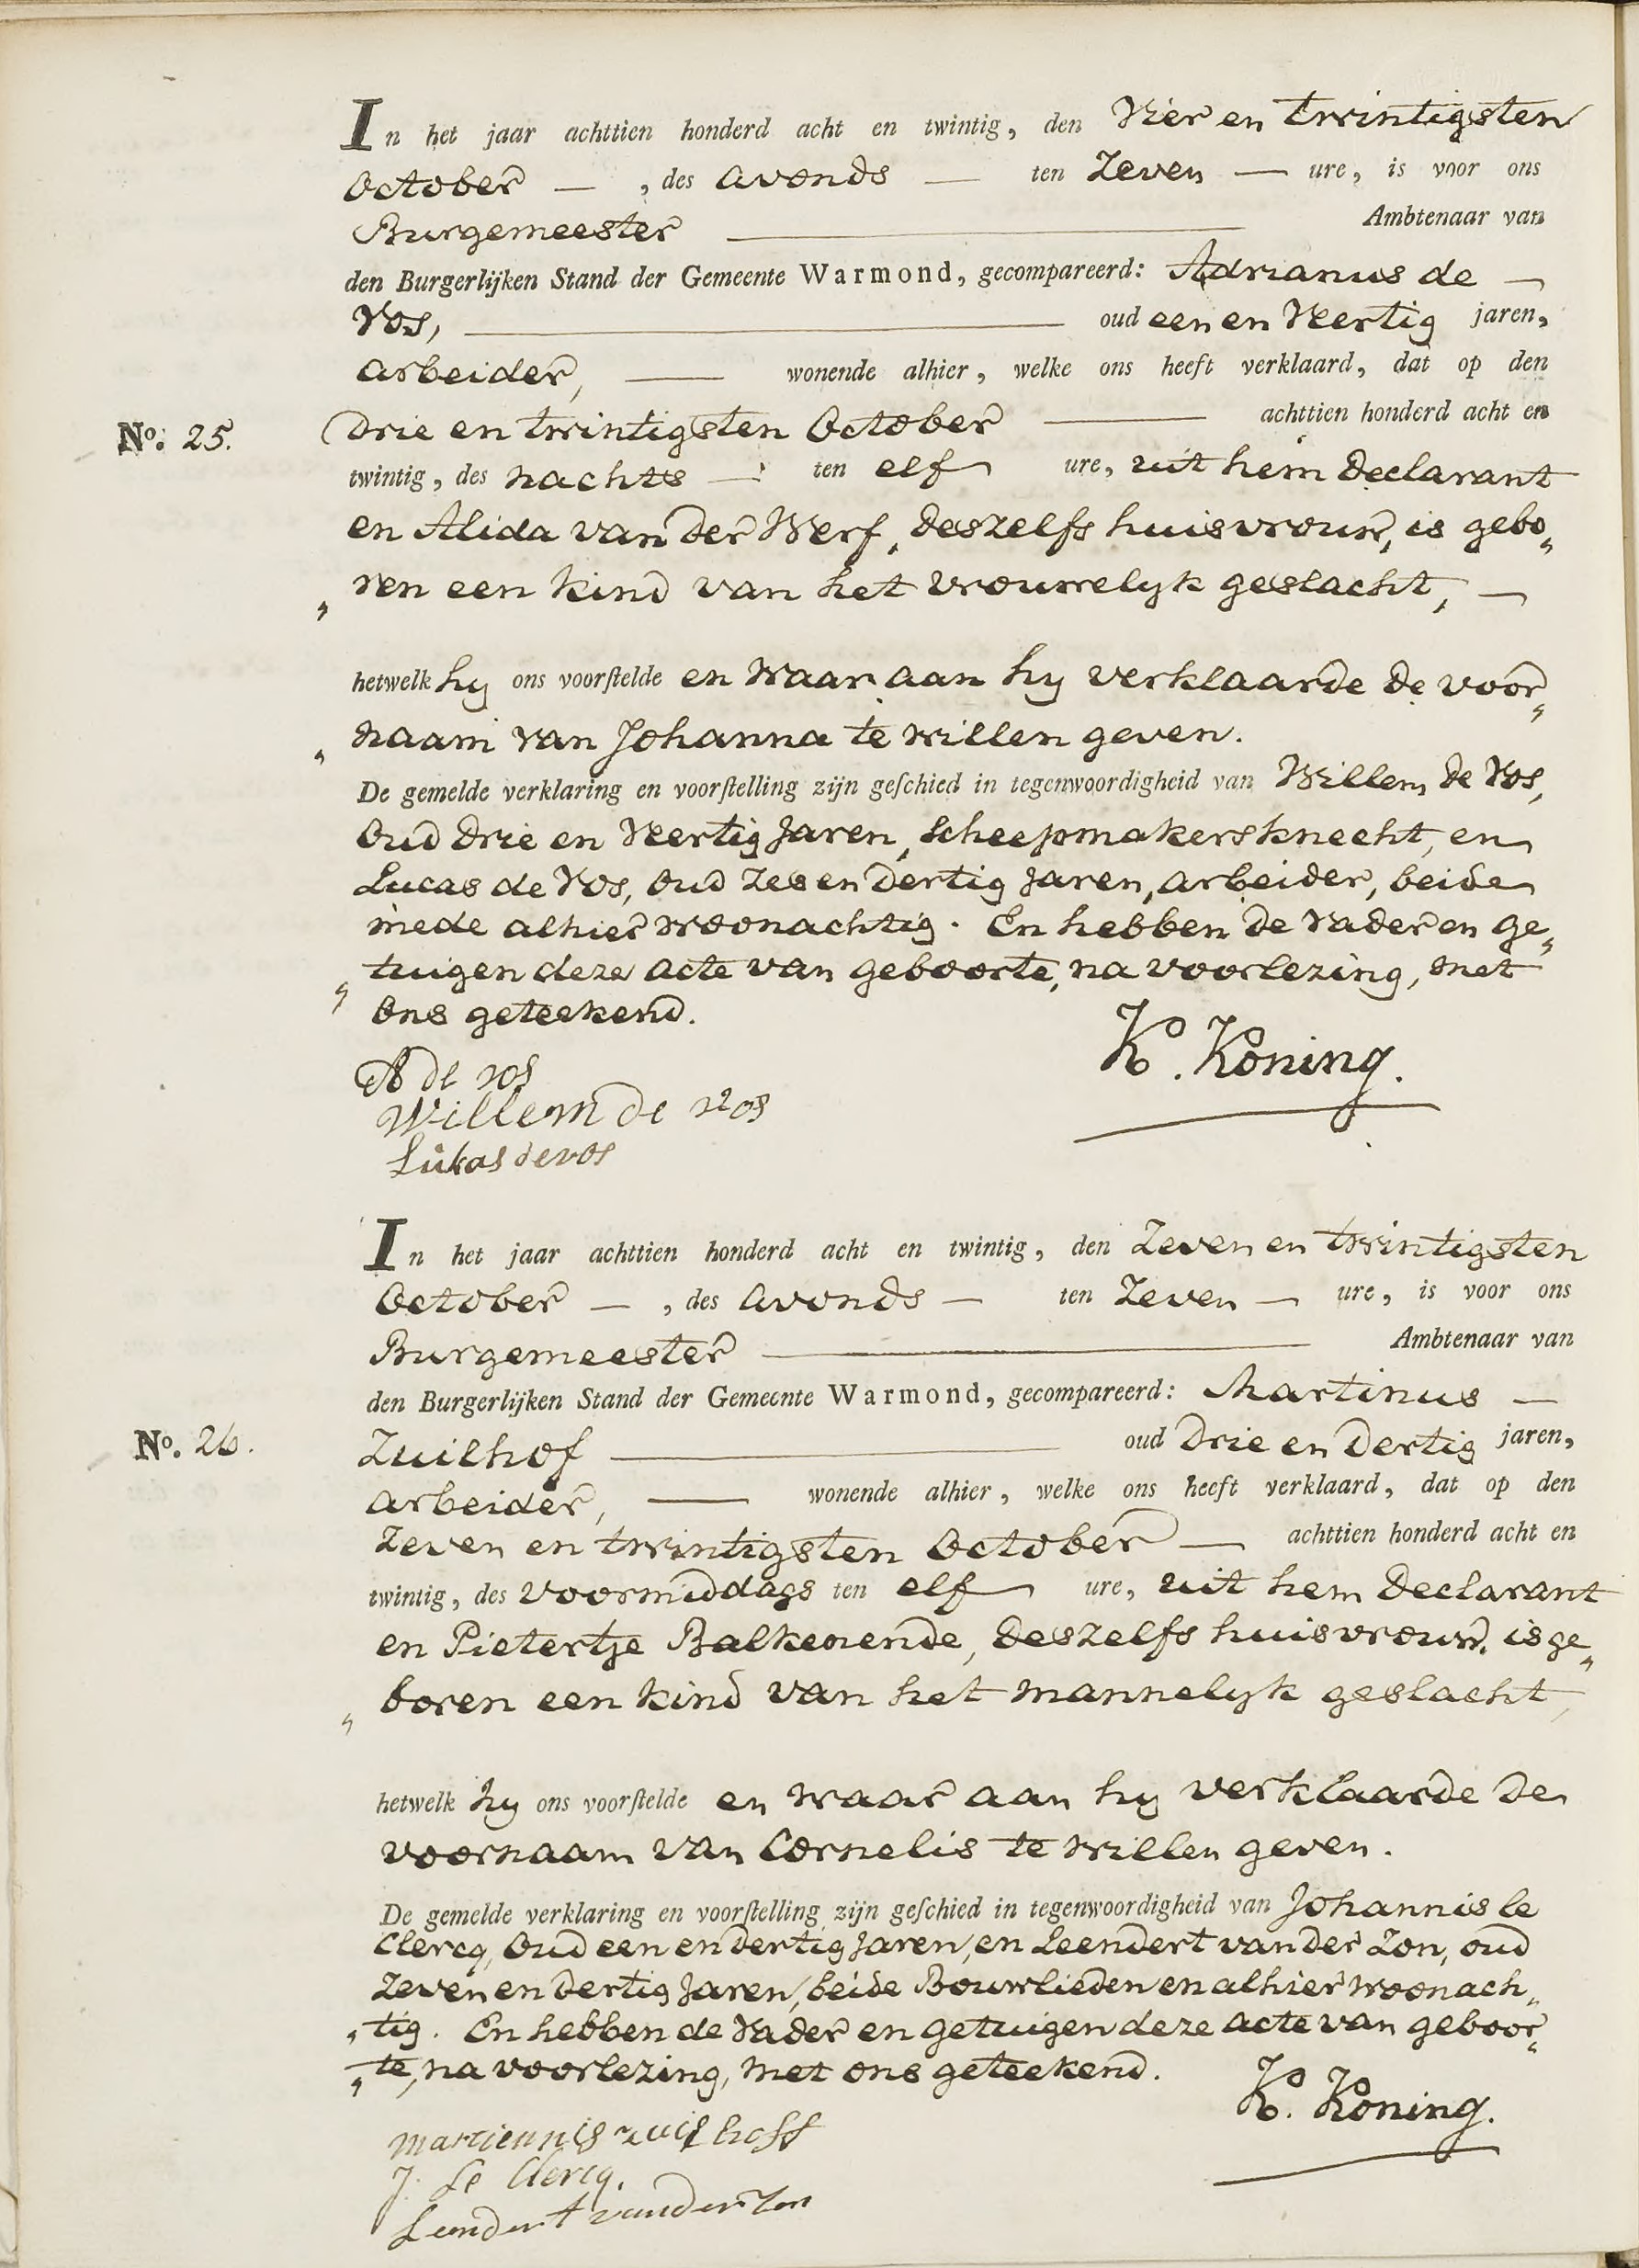 In het jaar achttien honderd acht en twintig, den Vier en twintigsten
October — , des avonds — ten Zeven — ure, is voor ons
Burgemeester — Ambtenaar van
den Burgerlijken Stand der Gemeente Warmond, gecompareerd: Adrianus de —
Vos, — oud een en Veertig jaren,
arbeider, — wonende alhier, welke ons heeft verklaard, dat op den
No. 25. Drie en twintigsten October — achttien honderd acht en
twintig, des nachts — ten elf ure, uit hem Declarant
en Alida van der Werf, deszelfs huisvrouw, is gebo„
„ren een kind van het vrouwelyk geslacht, —
hetwelk hy ons voorſtelde en waar aan hy verklaarde de voor„
„naam van Johanna te willen geven.
De gemelde verklaring en voorſtelling zijn geſchied in tegenwoordigheid van Willem de Vos,
Oud drie en Veertig Jaren, Scheepmakersknecht, en
Lucas de Vos, oud Zes en Dertig Jaren, arbeider, beide
mede alhier woonachtig. En hebben de Vader en ge„
„tuigen deze acte van geboorte, na voorlezing, met
Ons geteekend.
K. Koning.
A de vos
Willem de vos
Lukas de vos
In het jaar achttien honderd acht en twintig, den Zeven en twintigsten
October — , des avonds — ten Zeven — ure, is voor ons
Burgemeester — Ambtenaar van
den Burgerlijken Stand der Gemeente Warmond, gecompareerd: Martinus —
No. 26. Zuilhof — oud Drie en Dertig jaren,
arbeider, — wonende alhier, welke ons heeft verklaard, dat op den
Zeven en twintigsten October — achttien honderd acht en
twintig, des voormiddags ten elf ure, uit hem Declarant
en Pietertje Balkenende, deszelfs huisvrouw, is ge„
„boren een kind van het mannelyk geslacht,
hetwelk hy ons voorſtelde en waar aan hy verklaarde de
voornaam van Cornelis te willen geven.
De gemelde verklaring en voorſtelling zijn geſchied in tegenwoordigheid van Johannis le
Clercq, Oud een en dertig Jaren, en Leendert van der Zon, oud
Zeven en dertig Jaren, beide Bouwlieden en alhier woonach„
„tig. En hebben de Vader en getuigen deze acte van geboor„
„te, na voorlezing, met ons geteekend.
K. Koning.
martiennis zuilhoff
J. Le Clercq.
Leendert vander Zon